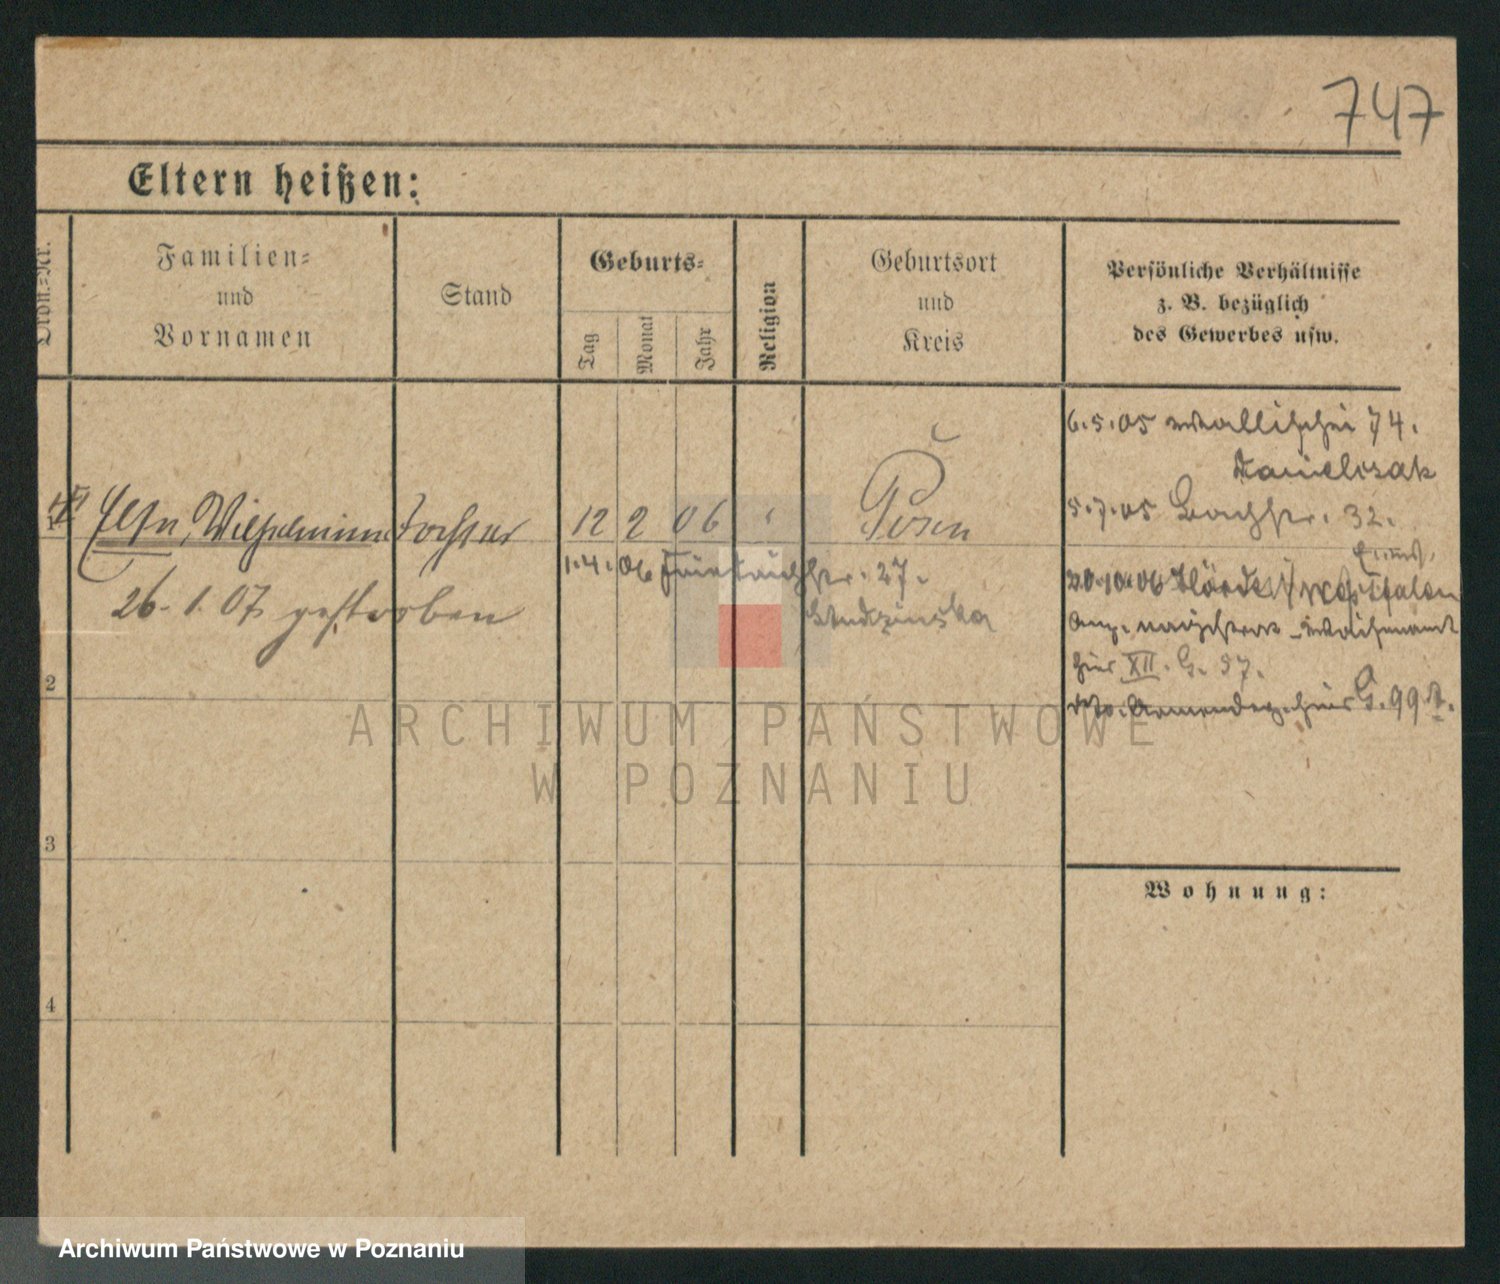 747
Eltern heißen:
Ordn.-Nr.
Familien-
und
Vornamen
Stand
Geburts-
Tag
Monat
Jahr
Religion
Geburtsort
und
Kreis
Persönliche Verhältnisse
z. B. bezüglich
des Gewerbes usw.
6.5.05 Wallischei 74.
Danielczak
5.7.05 Bachstr. 32.
1
Else, Wilhelmine Tochter 12 2 06 Posen
1.4.06 27.
26. 1. 07 gestorben
20.10.06 Hörde Westfalen
hier XII. G. 57.
2
hier G. 99
ARCHIWUM PAŃSTWOWE
W POZNANIU
3
Wohnung:
4
Archiwum Państwowe w Poznaniu